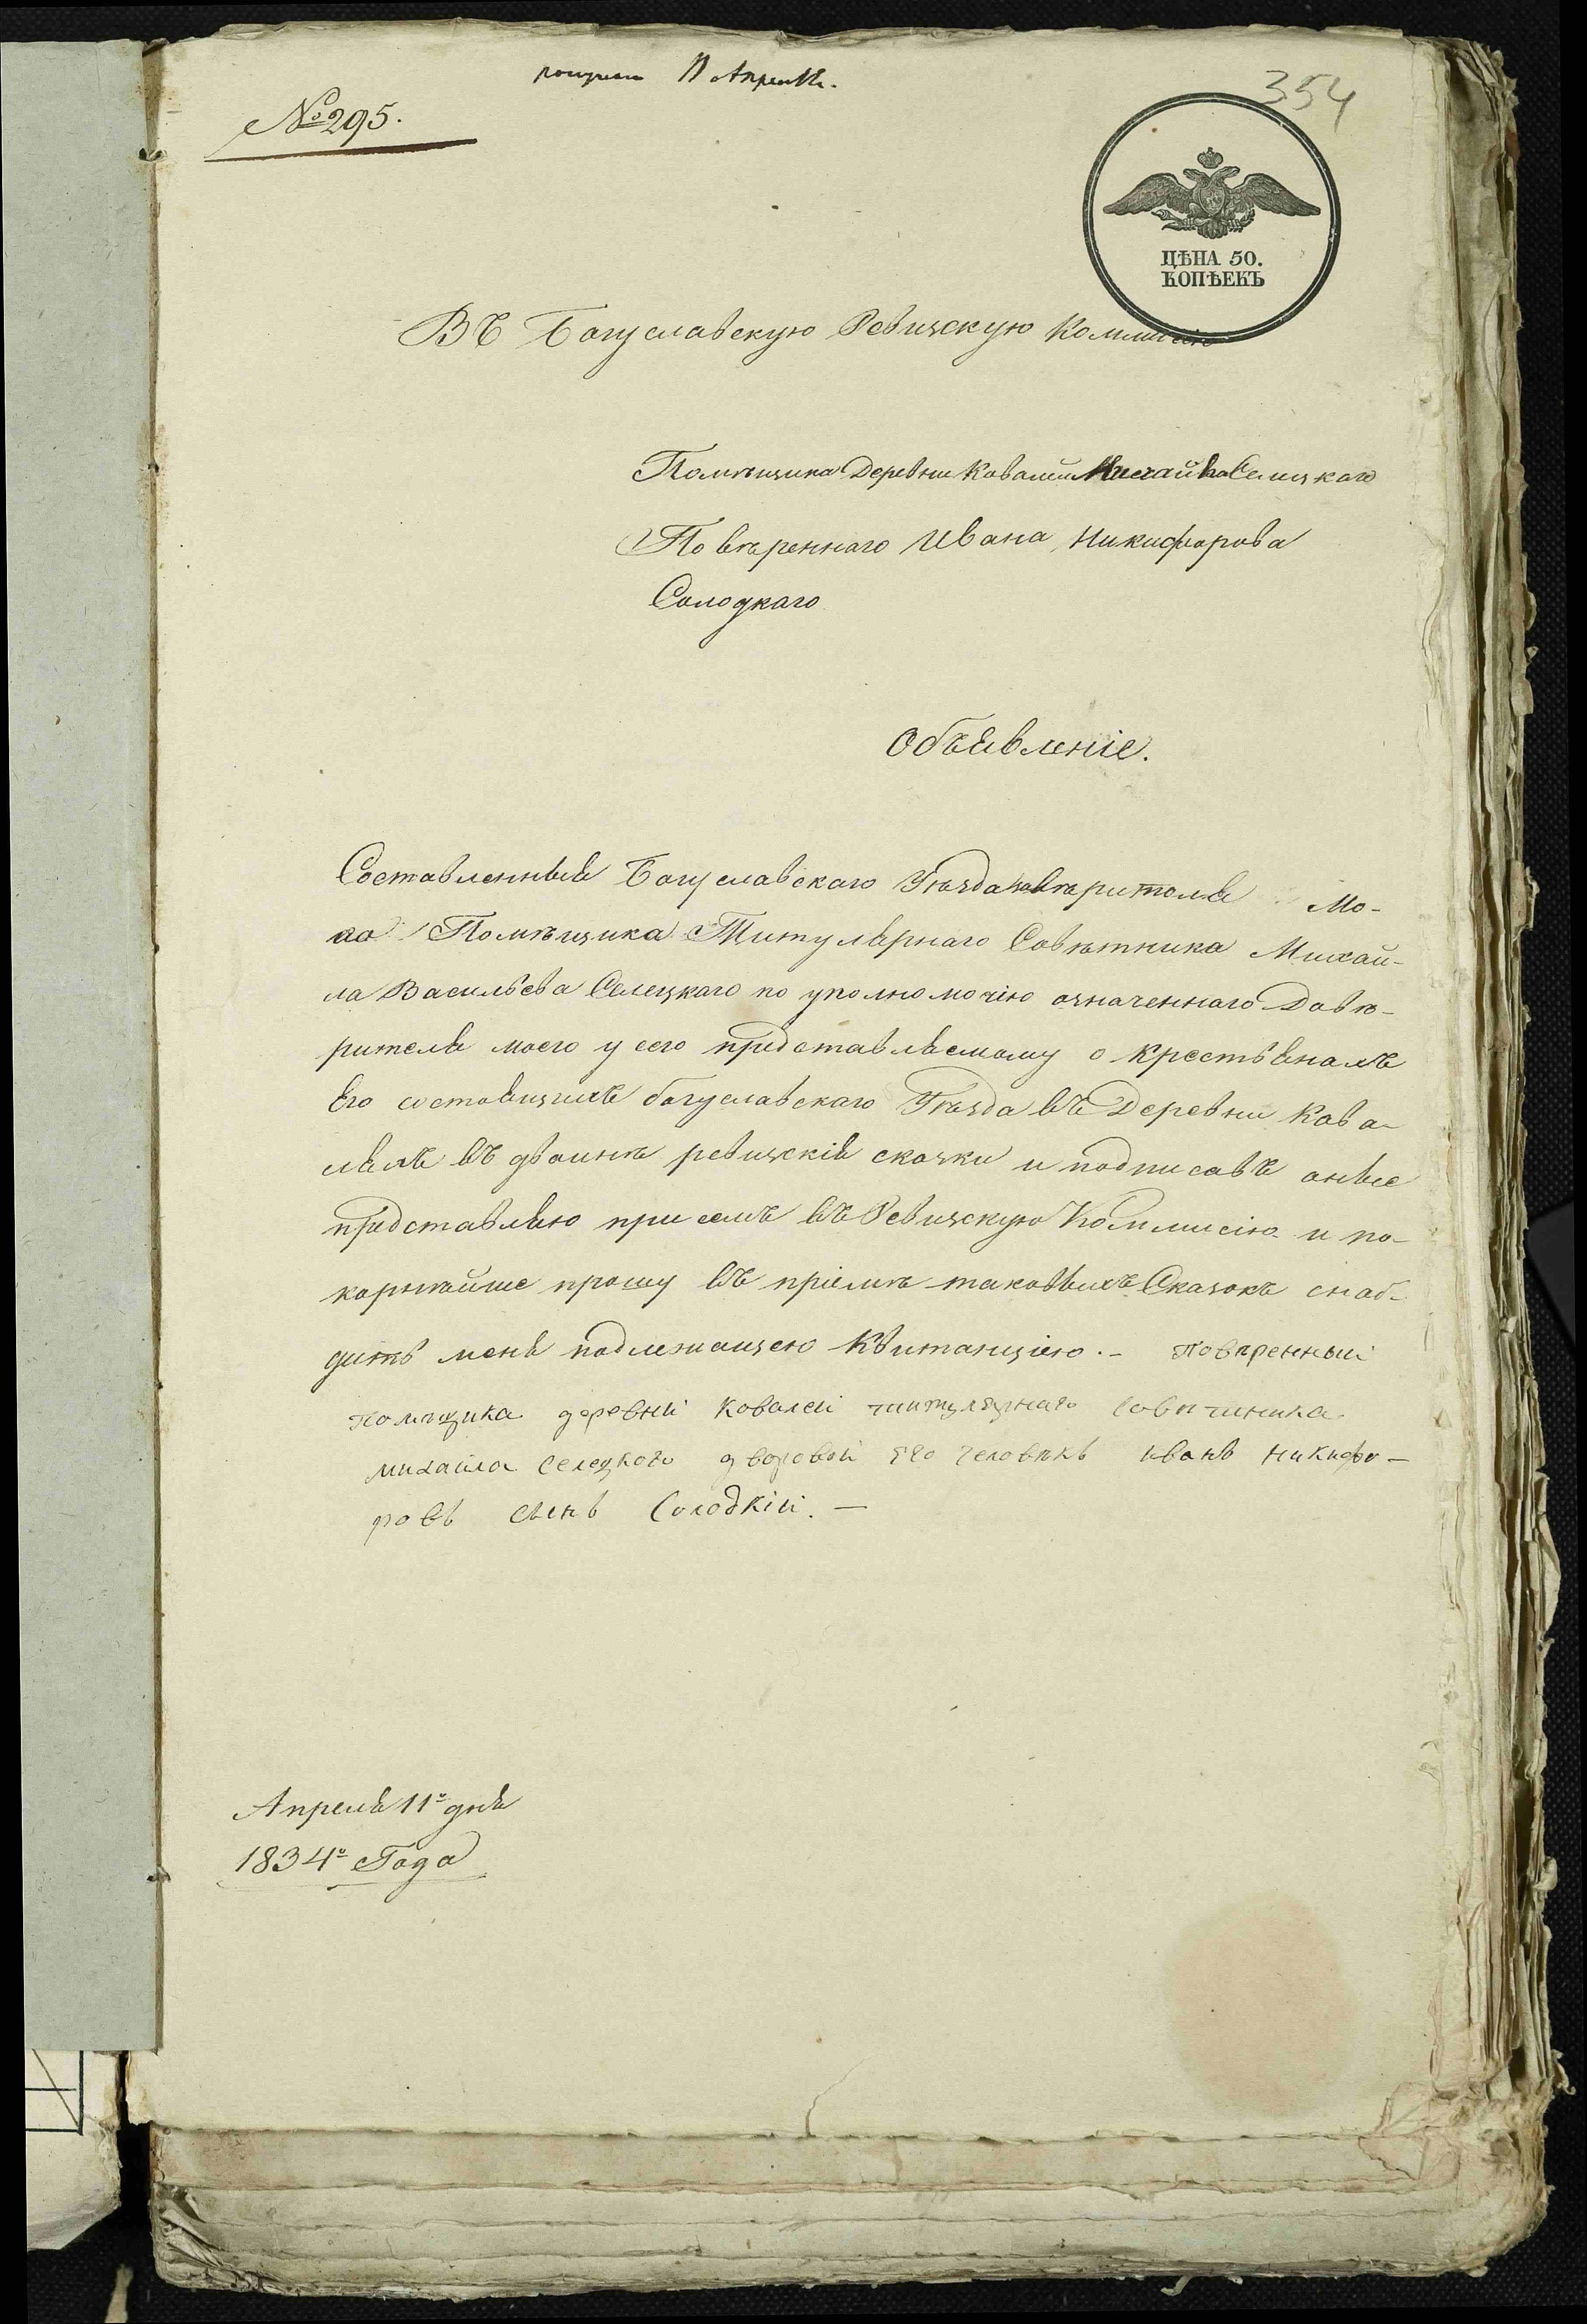 получено 11 Апреля.
354
№ 295.
ЦѢНА 50.
КОПѢЕКЪ
Въ Богуславскую Ревизскую Коммисію
Помѣщика Деревни Ковалей Михайла Селецкаго
Повѣреннаго Ивана Никифорова
Солодкаго
Объявленіе.
Составленныя Богуславскаго Уѣзда доверителя Мо-
го Помѣщика Титулярнаго Совѣтника Михай-
ла Васильева Селецкаго по уполномочію означеннаго Довѣ-
рителя моего у сего представляемому о крестьянахъ
Его состоящихъ богуславскаго Уѣзда въ Деревни Кова-
ляхъ въ двоинѣ ревизскія сказки и подписавъ оные
представляю при семъ въ Ревизскую Коммисію и по-
корнѣйше прошу въ пріемѣ таковыхъ Сказокъ снаб-
дить меня надлежащею Квитанціею. - повѣренный
помѣщика деревни ковалей титулярнаго Совѣтника
михайла селецкого дворовой его человѣкъ иванъ никифо-
ровъ сынъ Солодкій. -
Апреля 11º дня
1834º Года